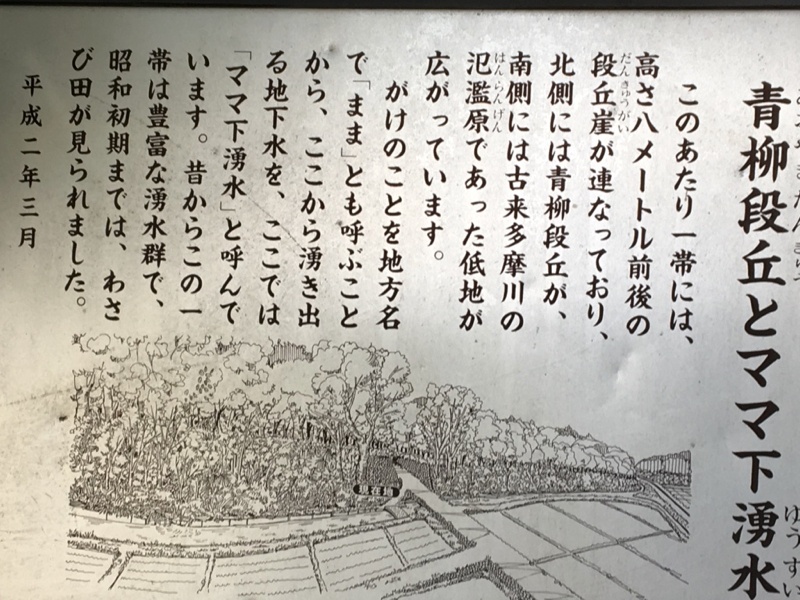 青柳段丘とママ下湧水
ゆうすい
このあたり一帯には、
高さ八メートル前後の
だんきゅうがい
段丘崖が連なっており、
北側には青柳段丘が、
南側には古来多摩川の
はんらんげん
氾濫原であった低地が
広がっています。
がけのことを地方名
で「まま」とも呼ぶこと
から、ここから湧き出
る地下水を、ここでは
「ママ下湧水」と呼んで
います。昔からこの一
帯は豊富な湧水群で、
昭和初期までは、わさ
び田が見られました。
平成二年三月
現在地